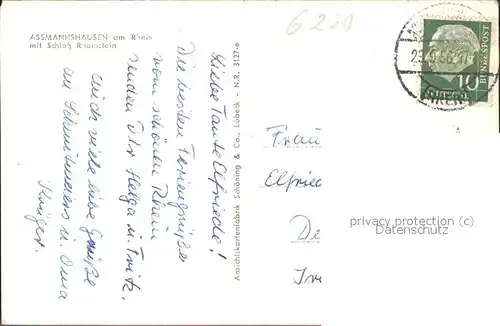 ASSMANNSHAUSEN am Rhein
mit Schloß Rheinstein
6200
Liebe Tante Elfriede!
Die besten Feriengrüße
vom schönen Rhein
senden Dir Helga u. Fritz.
Auch viele liebe Grüße
an Schmidmeiers u. Oma
Krüger.
Ansichtskartenfabrik Schöning & Co., Lübeck - N.R. 3127-a
10
BUNDESPOST
Frau
Elfriede
privacy protection (c)
Datenschutz